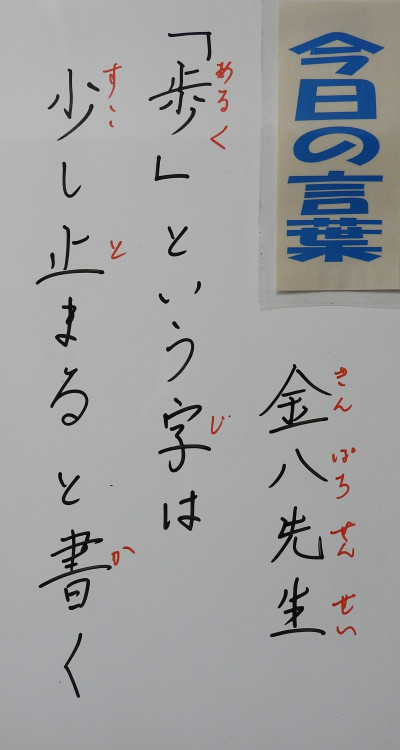 今日の言葉
金八先生
きんぱちせんせい
「歩」という字は
あるくじ
少し止まると書く
すことか